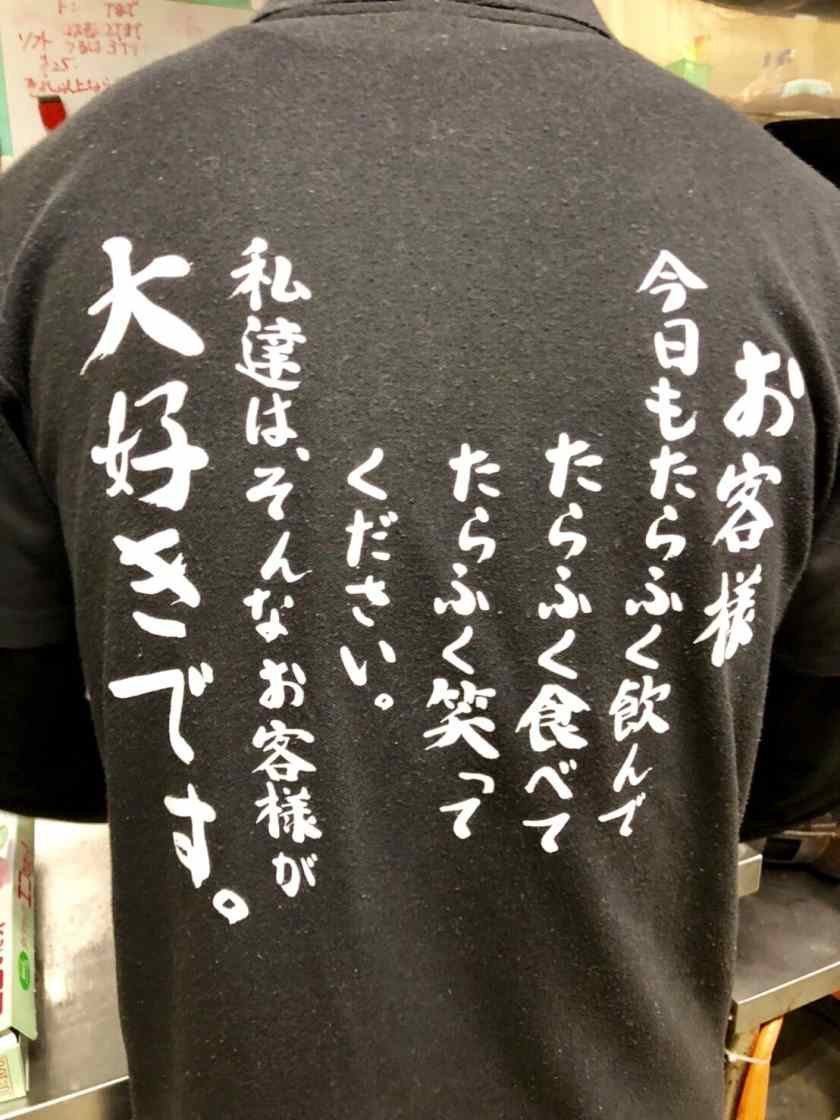 お客様
今日もたらふく飲んで
たらふく食べて
たらふく笑って
ください。
私達は、そんなお客様が
大好きです。